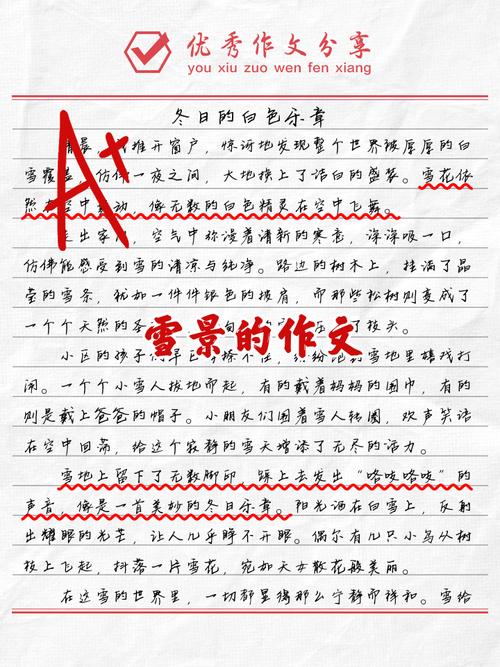 优秀作文分享
you xiu zuo wen fen xiang
冬日的白色乐章
清晨，推开窗户，惊讶地发现整个世界被厚厚的白
雪覆盖，仿佛一夜之间，大地换上了洁白的盛装。雪花依
然在空中舞动，像无数的白色精灵在空中飞舞。
走出家门，空气中弥漫着清新的寒意，深深吸一口，
仿佛能感受到雪的清凉与纯净。路边的树木上，挂满了晶
莹的雪条，犹如一件件银色的披肩，而那些松树则变成了
一个个天然的圣 了枝头。
雪景的作文
小区的孩子们早已 不住，纷纷跑到雪地里嬉戏打
闹。一个个小雪人拔地而起，有的戴着妈妈的围巾，有的
则是戴上爸爸的帽子。小朋友们围着雪人转圈，欢声笑语
在空中回荡，给这个寂静的雪天增添了无尽的活力。
雪地上留下了无数脚印，踩上去发出“咯吱咯吱”的
声音，像是一首美妙的冬日乐章。阳光洒在白雪上，反射
出耀眼的光芒，让人几乎睁不开眼。偶尔有几只小鸟从树
枝上飞起，抖落一片雪花，宛如天女散花般美丽。
在这雪的世界里，一切都显得那么宁静而祥和。雪给
A+